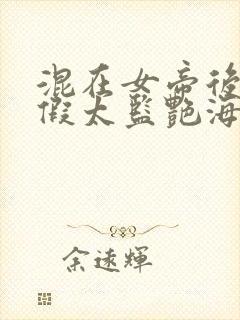 混在女帝後
假太監艷海
余遠輝